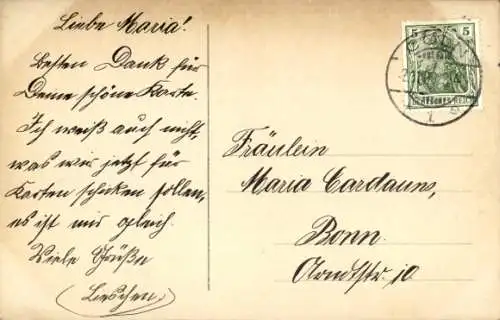 Liebe Maria!
Besten Dank für
Deine schöne Karte.
Ich weiß auch nicht,
was wir jetzt für
Karten schicken sollen,
es ist mir gleich.
Viele Grüße
(Lieschen)
5 5
DEUTSCHES REICH
Fräulein
Maria Cardauns,
Bonn.
Arndtstr. 10